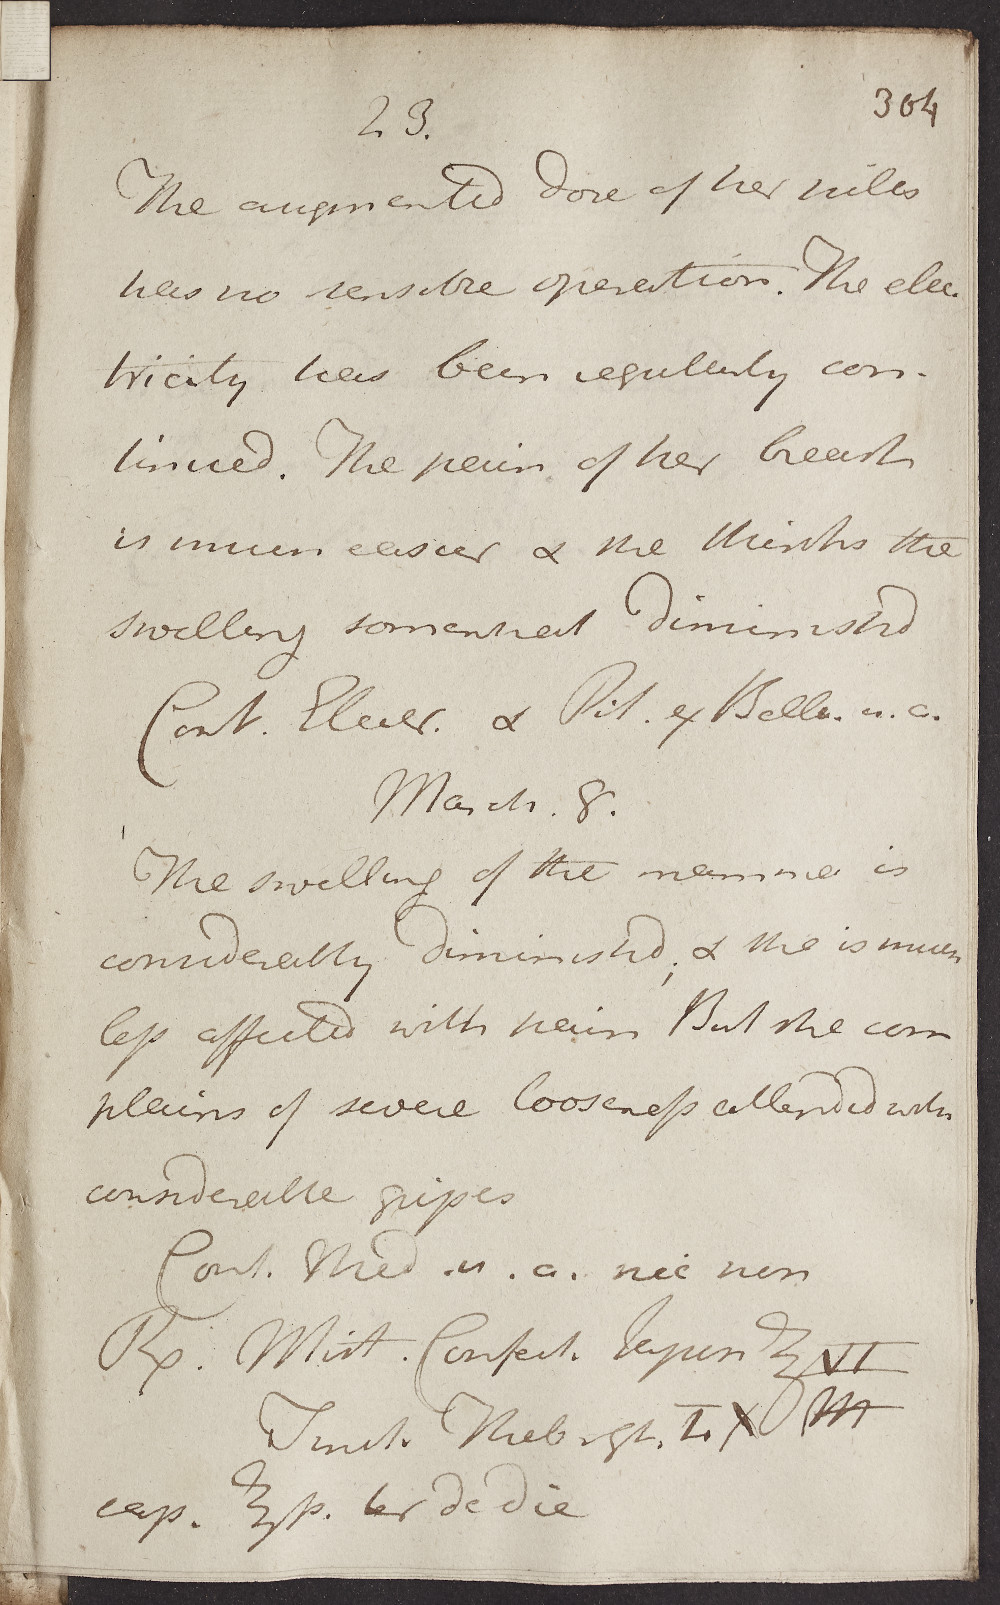 304
23.
The augmented dose of her pills
has no sensible operation. The elec-
tricity has been regularly con-
tinued. The pain of her breast
is much easier & she thinks the
swelling somewhat diminishd
Cont. Elect. & Pil. ex Bella. u.a.
March. 8.
The swelling of the mamma is
considerably diminishd, & she is much
less affected with pain But she com
plains of severe looseness attended with
considerable gripes
Cont. Med. u. a. nec non
Rx. Mist. Confect. Japon ℥VI
Tinct. Thebs gt. LX M
cap. ℥ss. ter de die